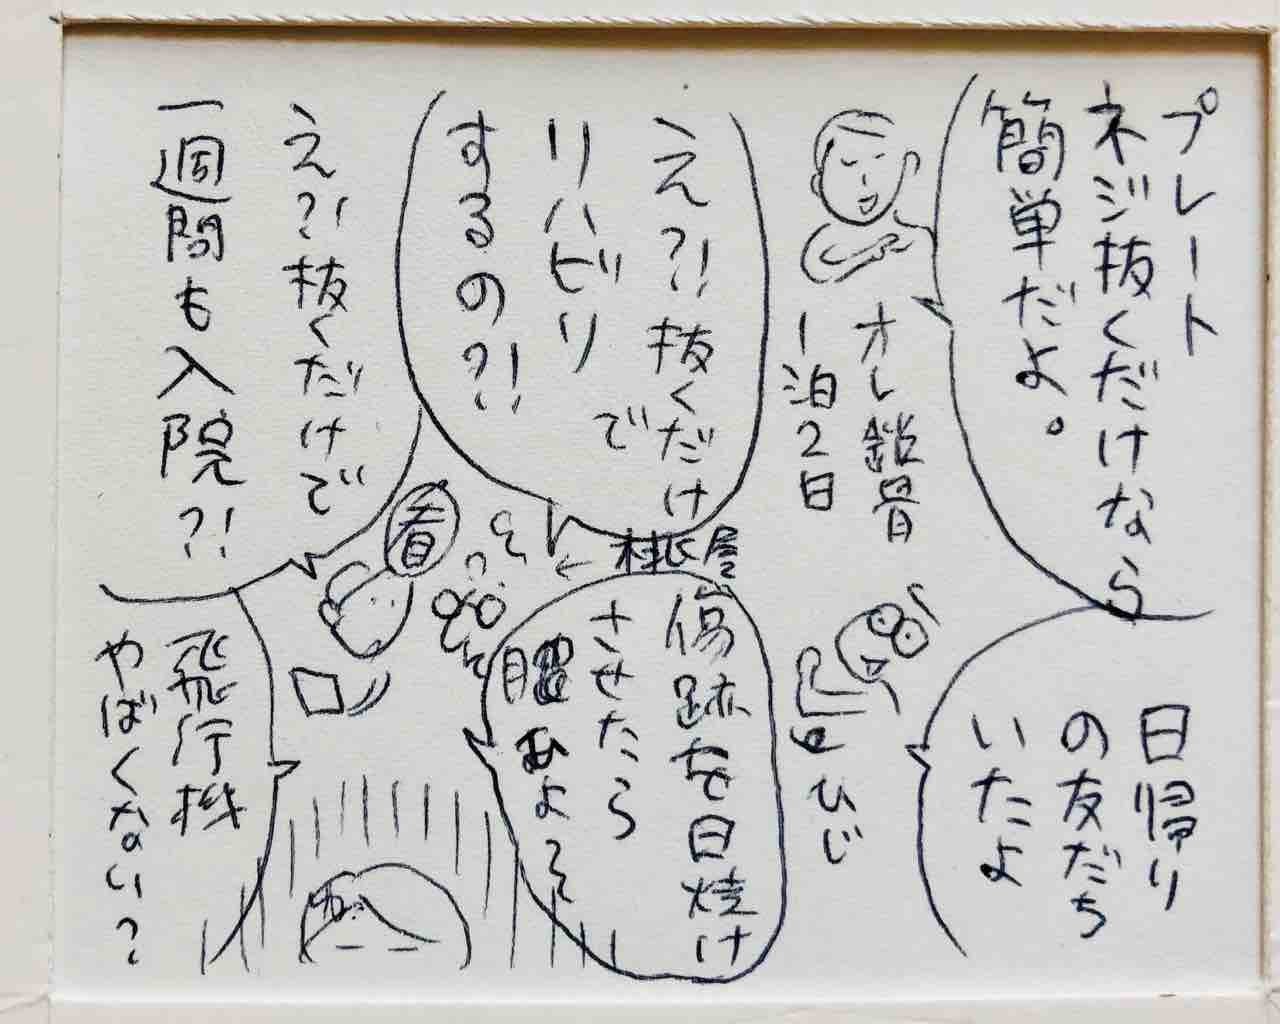 プレート
ネジ抜くだけなら
簡単だよ。
オレ鎖骨
1泊2日
日帰り
の友だち
いたよ
ひじ
え?!抜くだけ
で
リハビリ
するの?!
桃屋
傷跡を日焼け
させたら
え?!抜くだけで
一週間も入院?!
看
飛行機
やばくない?